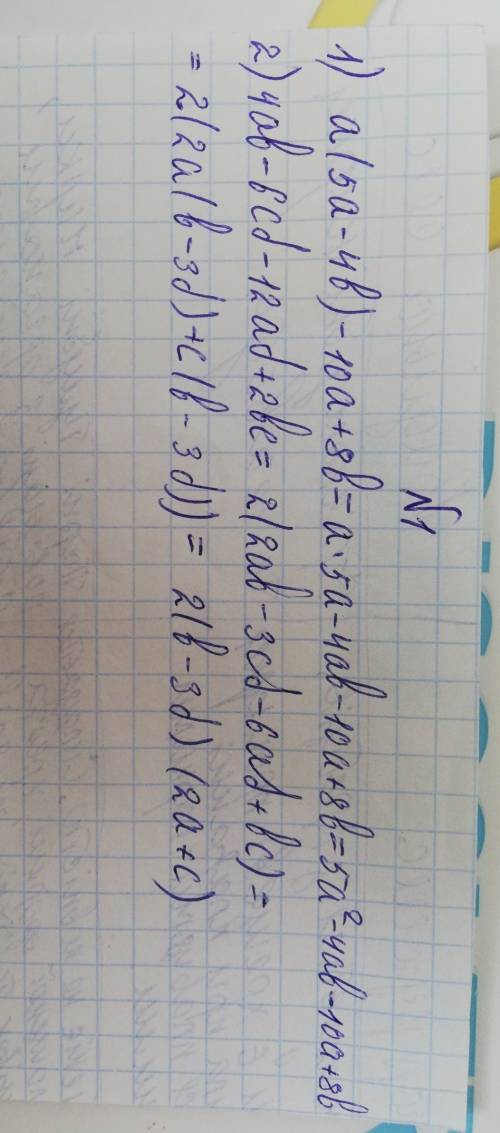 N1
1) a(5a-4b)-10a+8b=a·5a-4ab-10a+8b=5a²-4ab-10a+8b
2) 4ab-6cd-12ad+2bc=2(2ab-3cd-6ad+bc)=
=2(2a(b-3d)+c(b-3d))=2(b-3d)(2a+c)